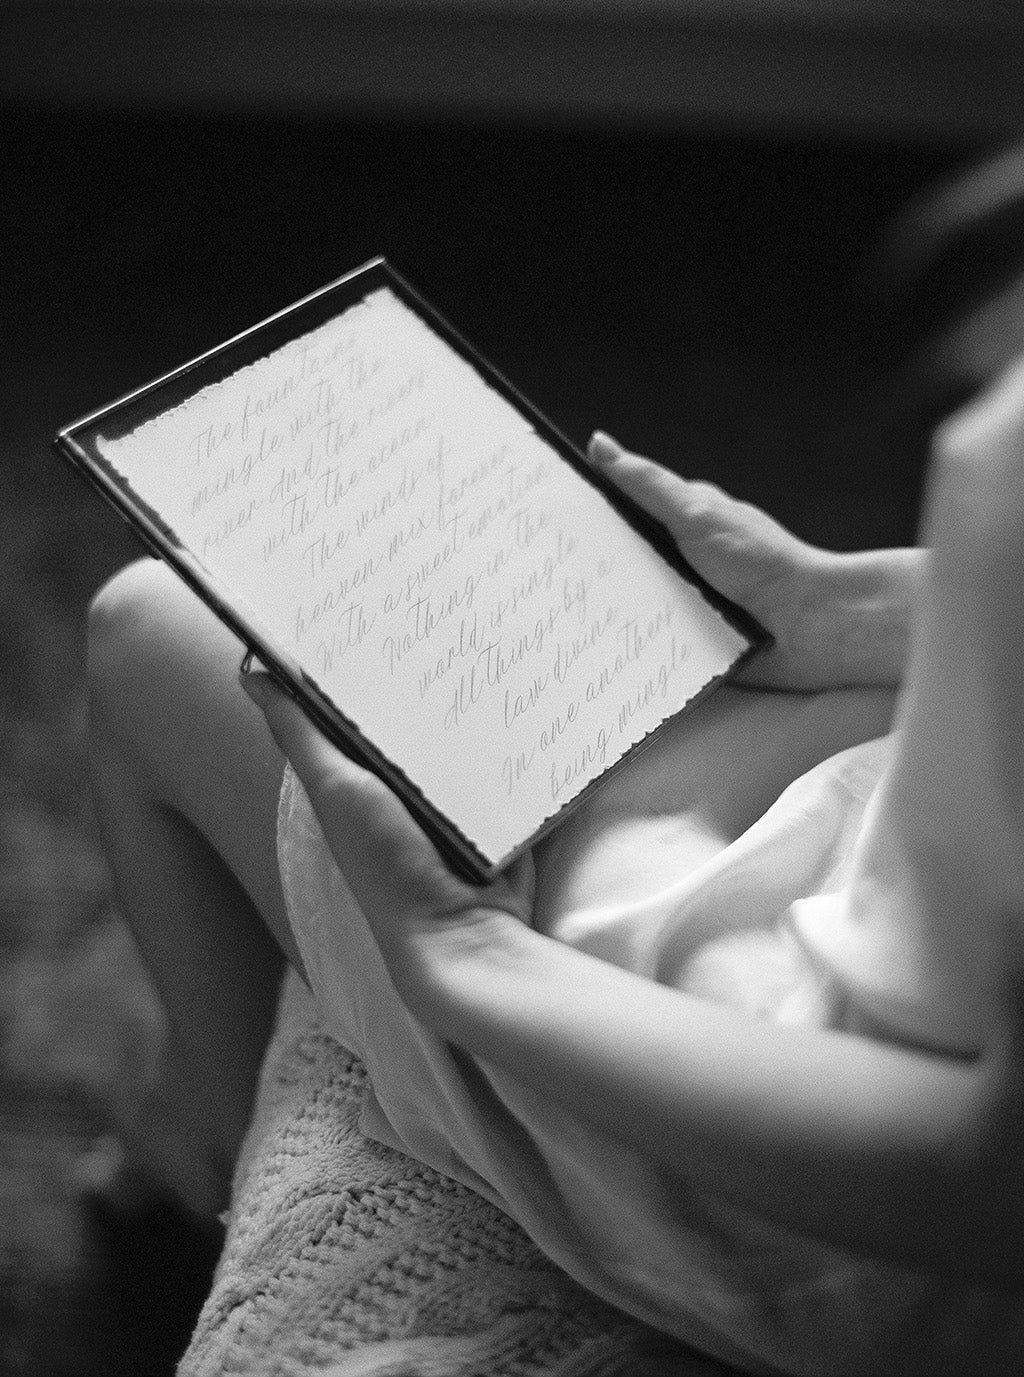 The fountains
mingle with the
river And the rivers
with the ocean
The winds of
heaven mix forever
With a sweet emotion
Nothing in the
world is single
All things by a
law divine
In one anothers
being mingle